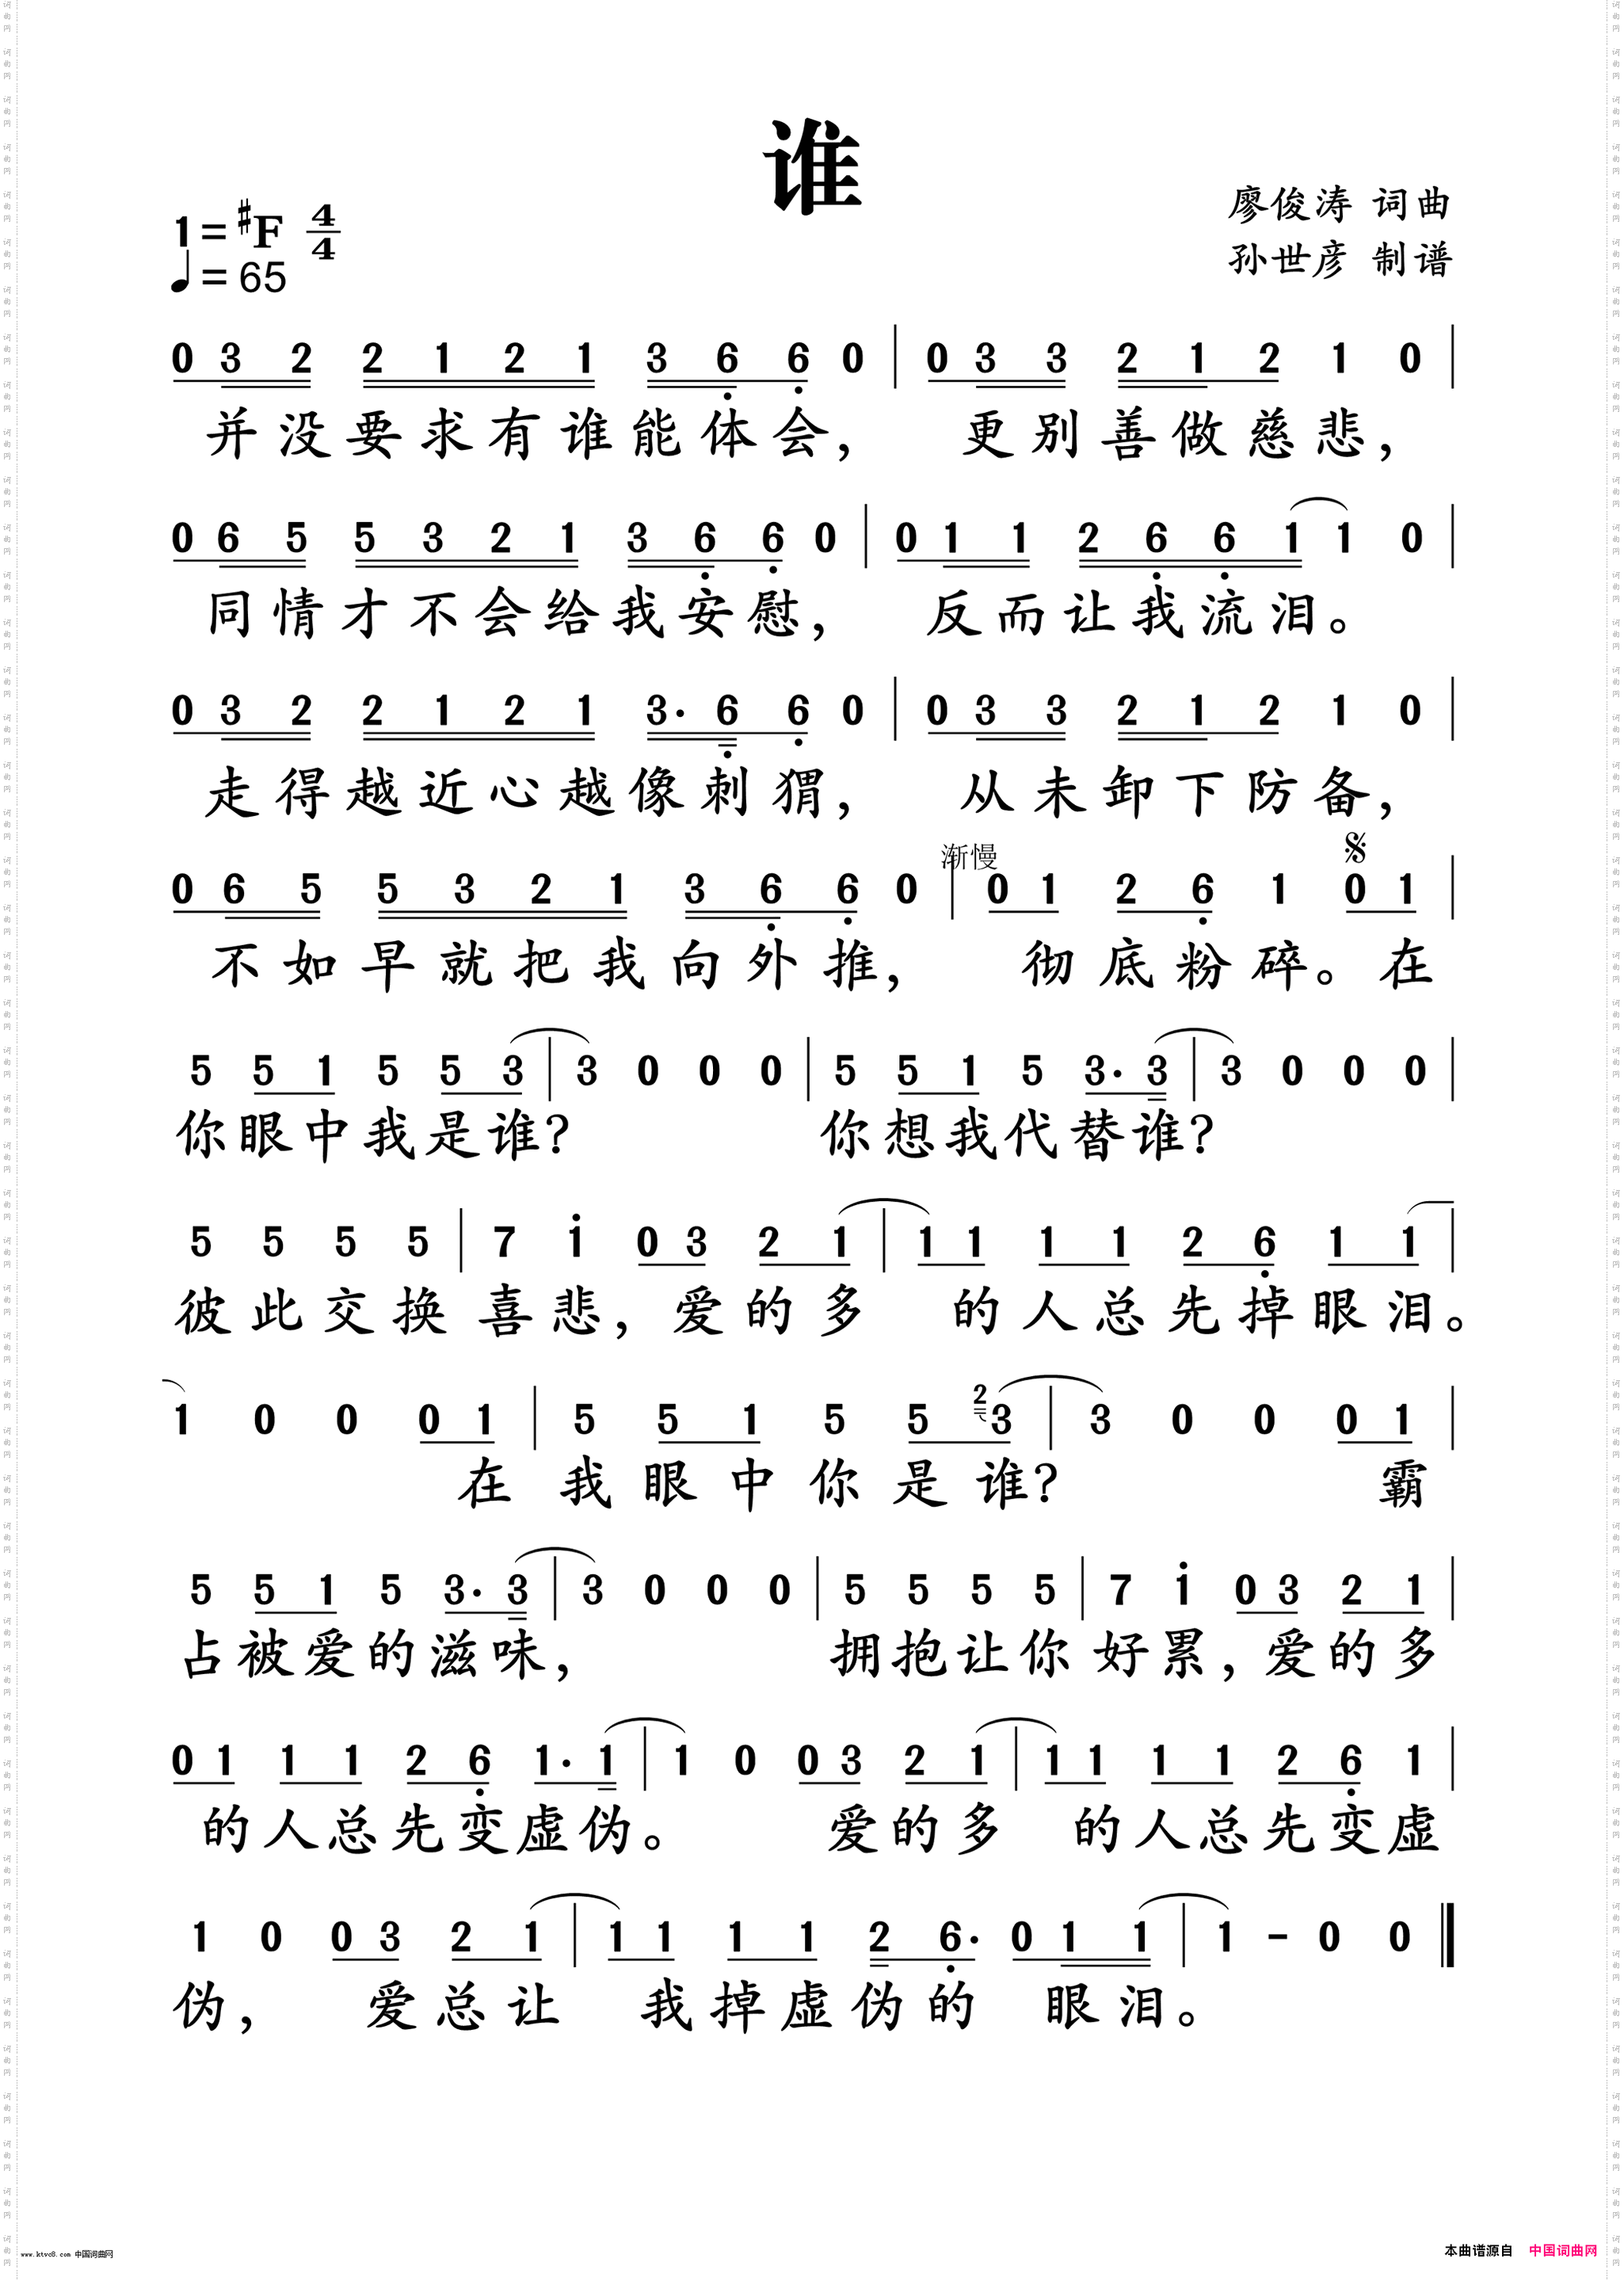 谁
廖俊涛 词曲
孙世彦 制谱
1=#F 4/4
♩=65
0 3 2 2 1 2 1 3 6 6 0 | 0 3 3 2 1 2 1 0 |
并没要求有谁能体会， 更别善做慈悲，
0 6 5 5 3 2 1 3 6 6 0 | 0 1 1 2 6 6 1 1 0 |
同情才不会给我安慰， 反而让我流泪。
0 3 2 2 1 2 1 3· 6 6 0 | 0 3 3 2 1 2 1 0 |
走得越近心越像刺猬， 从未卸下防备，
渐慢
0 6 5 5 3 2 1 3 6 6 0 | 0 1 2 6 1 0 1 |
不如早就把我向外推， 彻底粉碎。在
5 5 1 5 5 3 | 3 0 0 0 | 5 5 1 5 3· 3 | 3 0 0 0 |
你眼中我是谁? 你想我代替谁?
5 5 5 5 | 7 1 0 3 2 1 | 1 1 1 1 2 6 1 1 |
彼此交换喜悲，爱的多 的人总先掉眼泪。
1 0 0 0 1 | 5 5 1 5 5 2 3 | 3 0 0 0 1 |
在我眼中你是谁? 霸
5 5 1 5 3· 3 | 3 0 0 0 | 5 5 5 5 | 7 1 0 3 2 1 |
占被爱的滋味， 拥抱让你好累，爱的多
0 1 1 1 2 6 1· 1 | 1 0 0 3 2 1 | 1 1 1 1 2 6 1 |
的人总先变虚伪。 爱的多 的人总先变虚
1 0 0 3 2 1 | 1 1 1 1 2 6· 0 1 1 | 1 - 0 0 ‖
伪， 爱总让 我掉虚伪的 眼泪。
www.ktvc8.com 中国词曲网
本曲谱源自 中国词曲网